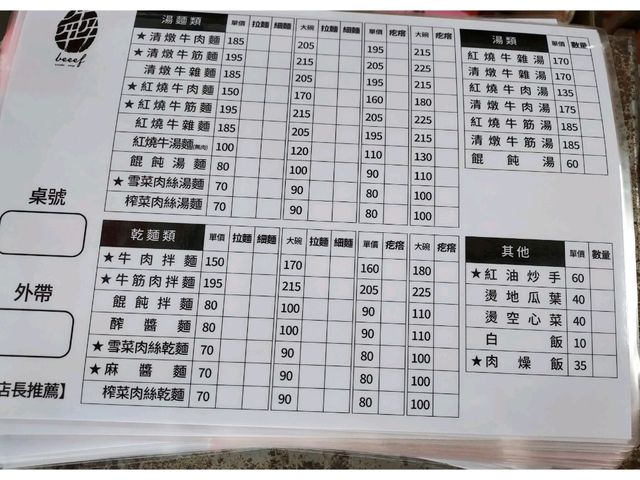 beeef
湯麵類 單價 拉麵 細麵 大碗 拉麵 細麵 單價 疙瘩 大碗 疙瘩
★清燉牛肉麵 185 205 195 215
★清燉牛筋麵 195 215 205 225
清燉牛雜麵 185 205 195 215
★紅燒牛肉麵 150 170 160 180
★紅燒牛筋麵 195 215 205 225
紅燒牛雜麵 185 205 195 215
紅燒牛湯麵(無肉) 100 120 110 130
餛飩湯麵 80 100 90 110
★雪菜肉絲湯麵 70 90 80 100
榨菜肉絲湯麵 70 90 80 100
湯類 單價 數量
紅燒牛雜湯 170
清燉牛雜湯 170
紅燒牛肉湯 135
清燉牛肉湯 175
紅燒牛筋湯 185
清燉牛筋湯 185
餛飩湯 60
桌號
外帶
店長推薦】
乾麵類 單價 拉麵 細麵 大碗 拉麵 細麵 單價 疙瘩 大碗 疙瘩
★牛肉拌麵 150 170 160 180
★牛筋肉拌麵 195 215 205 225
餛飩拌麵 80 100 90 110
醡醬麵 80 100 90 110
★雪菜肉絲乾麵 70 90 80 100
★麻醬麵 70 90 80 100
榨菜肉絲乾麵 70 90 80 100
其他 單價 數量
★紅油炒手 60
燙地瓜葉 40
燙空心菜 40
白飯 10
★肉燥飯 35